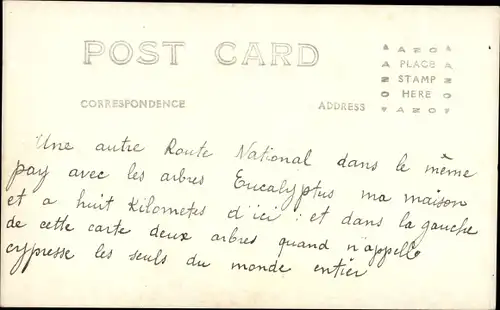 POST CARD
CORRESPONDENCE
ADDRESS
AZO
PLACE
STAMP
HERE
AZO
Une autre Route National dans le même
pay avec les arbres Eucalyptus ma maison
et a huit Kilometes d'ici : et dans la gauche
de cette carte deux arbres quand n'appelle
cypresse les seuls du monde entier